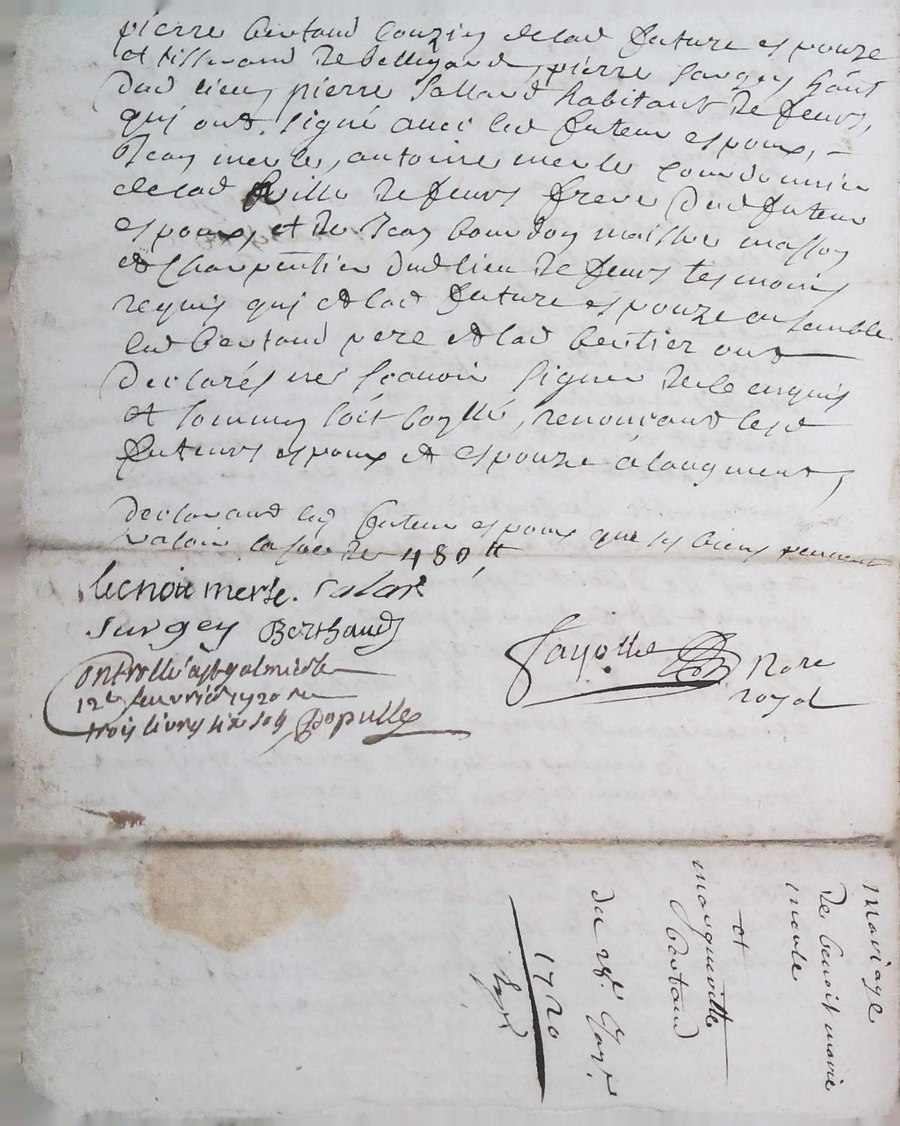 pierre bertaud couzin de lad future espouze
et tisserand de bellegarde, pierre surgey hãnt
dud lieu, pierre sallard habitant de feurs,
qui ont signé avec led futeur espoux,
Jean merle, antoine merle courdonnier
de lad ville de feurs frere dud futeur
espoux, et de Jean bourdon maistre masson
et Charpentier dud lieu de feurs tesmoins
requis qui et lad future espouze ensemble
led bertaud pere et lad bertier ont
declarés ne scavoir signer de ce enquis
et sommes soit coṗllé, renonceant lesd
futeurs espoux et espouze a laugment,
declarant led futeur espoux que ses biens peuvent
valoir la soẽ de 480 ₶
benoit merle. salar
Surgey Berthaud
Fayolle Nore
royal
Controllé a st galmier le
12e feuvrier 1720 Re
trois livres six sols Populle
mariage
de benoit marie
merle
et
margueritte
bertaud
du 28e Janr
1720
Exp